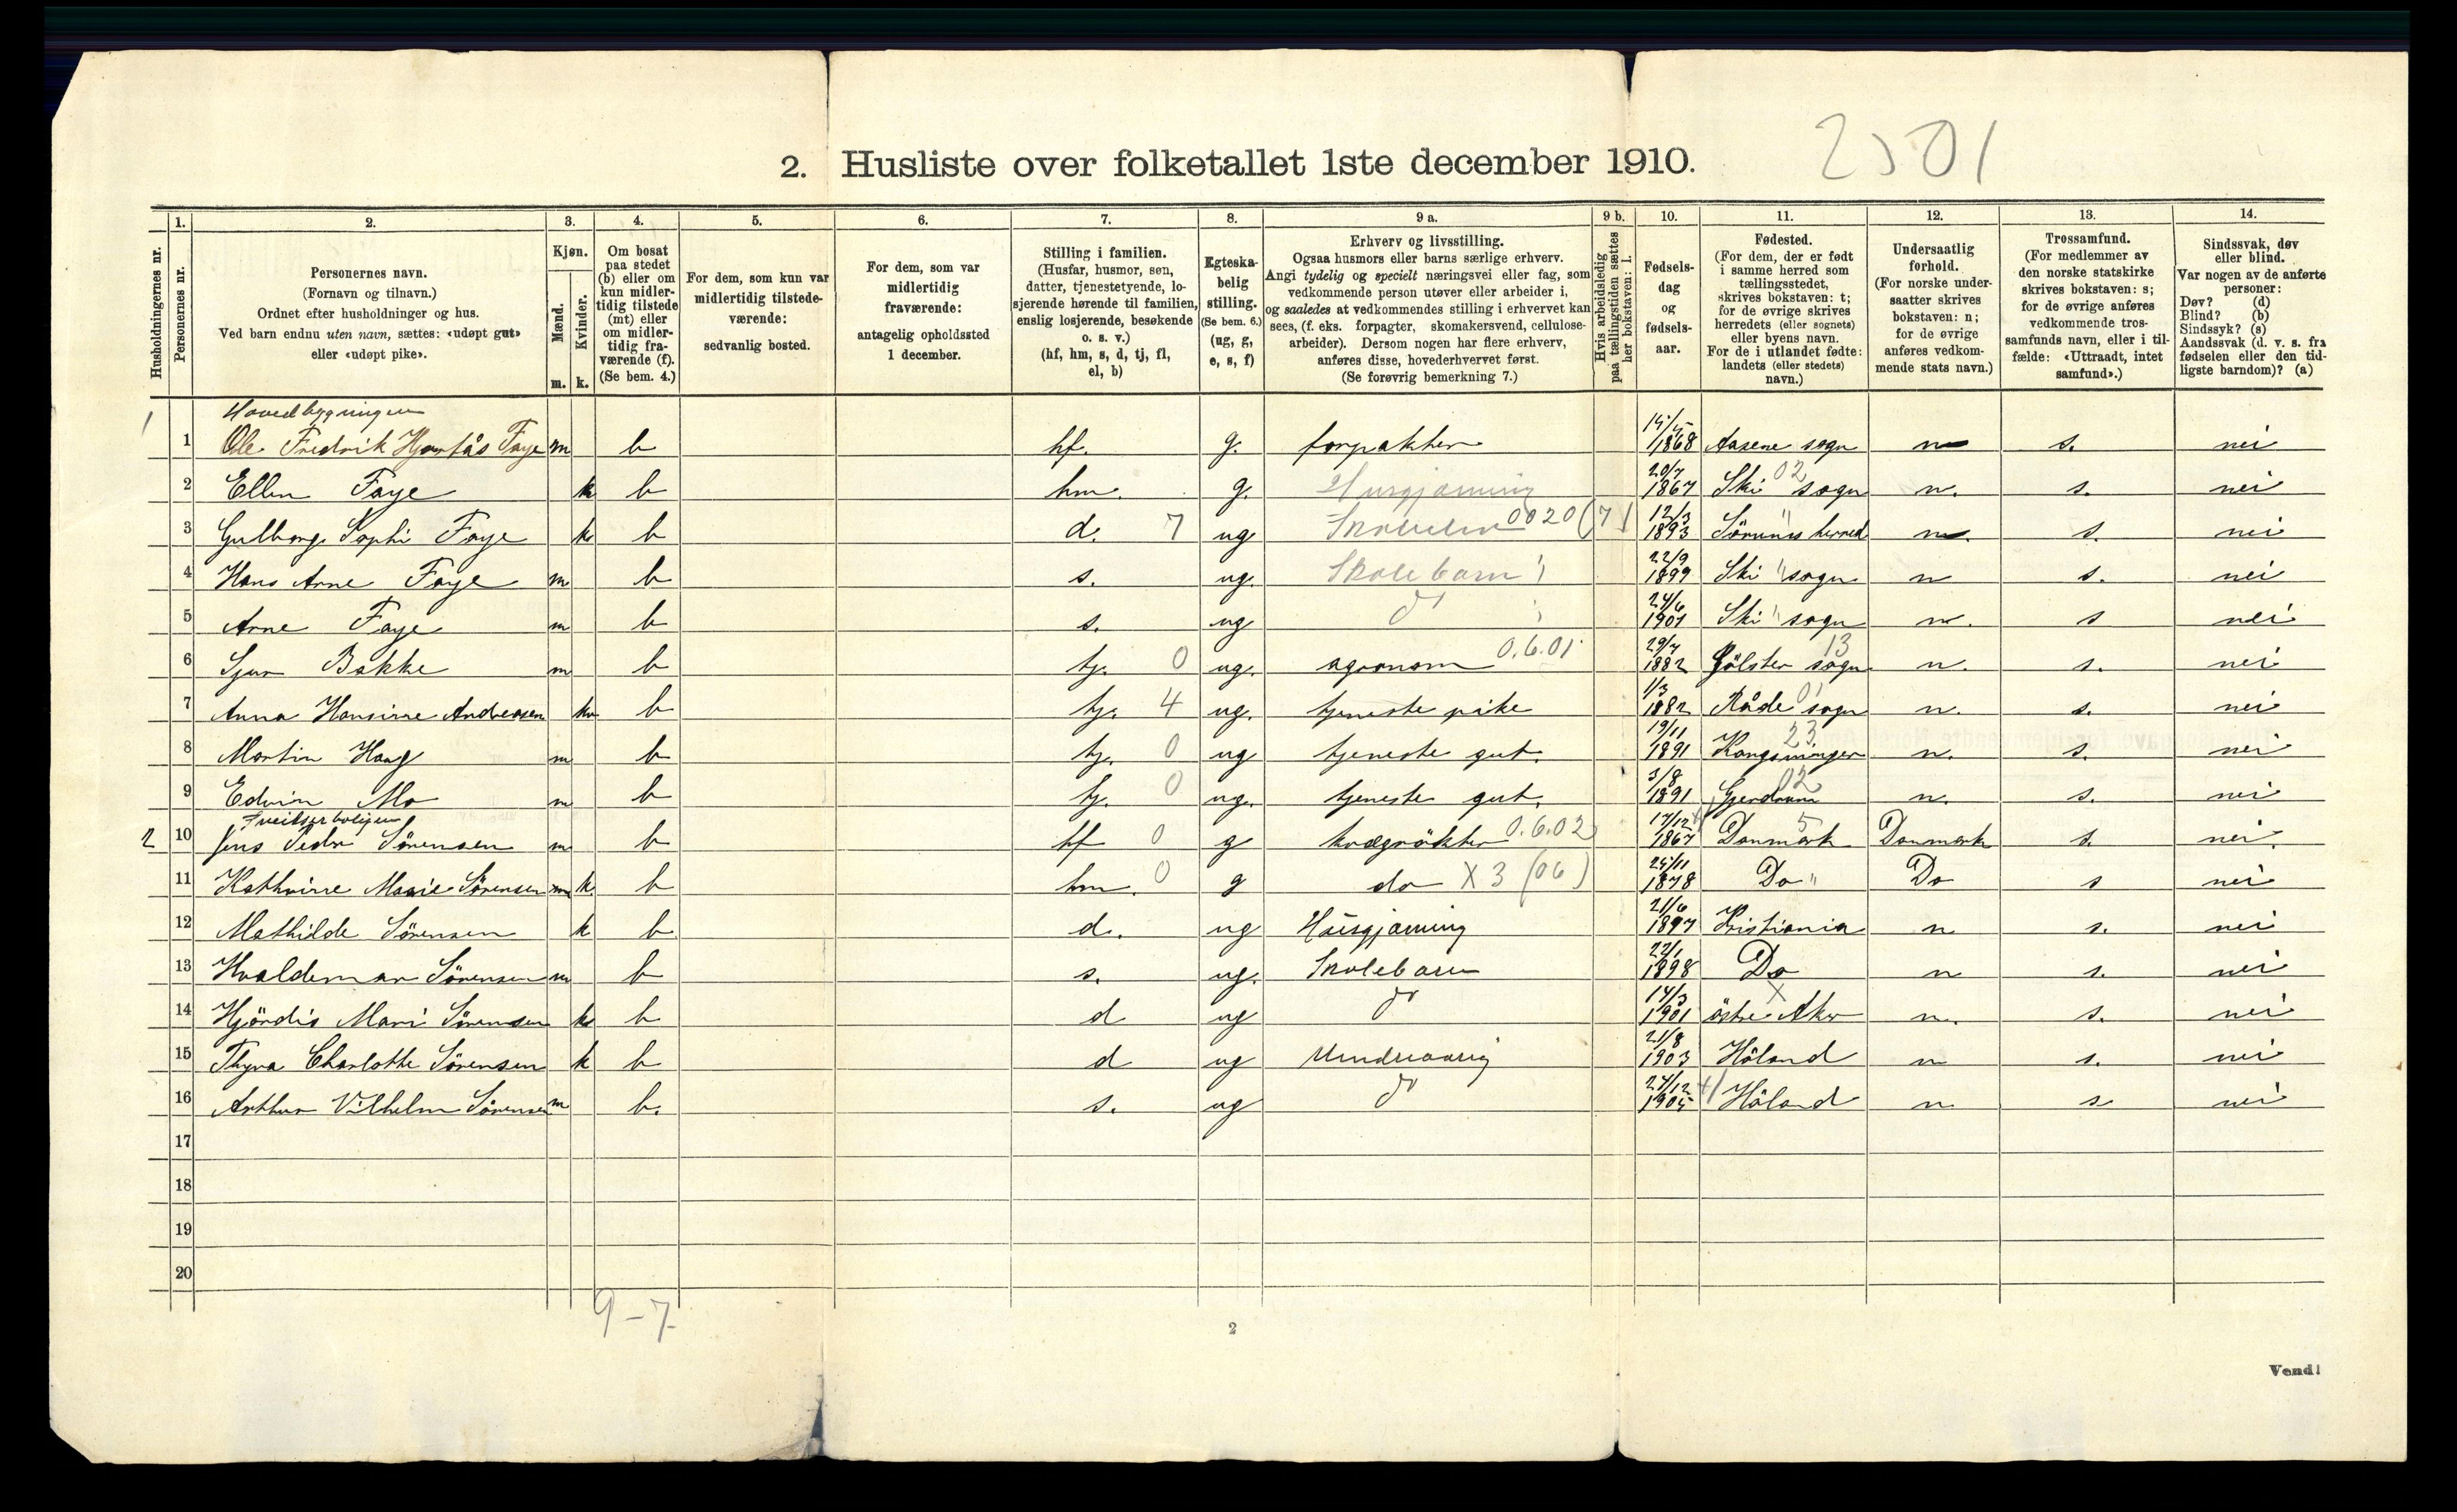 2501
2. Husliste over folketallet 1ste december 1910.
Husholdningernes nr.
1. Personernes nr.
2. Personernes navn. (Fornavn og tilnavn.) Ordnet efter husholdninger og hus. Ved barn endnu uten navn, sættes: «udøpt gut» eller «udøpt pike».
3. Kjøn. Mænd. m. Kvinder. k.
4. Om bosat paa stedet (b) eller om kun midlertidig tilstede (mt) eller om midlertidig fraværende (f). (Se bem. 4.)
5. For dem, som kun var midlertidig tilstedeværende: sedvanlig bosted.
6. For dem, som var midlertidig fraværende: antagelig opholdssted 1 december.
7. Stilling i familien. (Husfar, husmor, søn, datter, tjenestetyende, losjerende hørende til familien, enslig losjerende, besøkende o. s. v.) (hf, hm, s, d, tj, fl, el, b)
8. Egteskabelig stilling. (Se bem. 6.) (ug, g, e, s, f)
9 a. Erhverv og livsstilling. Ogsaa husmors eller barns særlige erhverv. Angi tydelig og specielt næringsvei eller fag, som vedkommende person utøver eller arbeider i, og saaledes at vedkommendes stilling i erhvervet kan sees, (f. eks. forpagter, skomakersvend, cellulosearbeider). Dersom nogen har flere erhverv, anføres disse, hovederhvervet først. (Se forøvrig bemerkning 7.)
9 b. Hvis arbeidsledig paa tællingstiden sættes her bokstaven: l.
10. Fødselsdag og fødselsaar.
11. Fødested. (For dem, der er født i samme herred som tællingsstedet, skrives bokstaven: t; for de øvrige skrives herredets (eller sognets) eller byens navn. For de i utlandet fødte: landets (eller stedets) navn.)
12. Undersaatlig forhold. (For norske undersaatter skrives bokstaven: n; for de øvrige anføres vedkommende stats navn.)
13. Trossamfund. (For medlemmer av den norske statskirke skrives bokstaven: s; for de øvrige anføres vedkommende trossamfunds navn, eller i tilfælde: «Uttraadt, intet samfund».)
14. Sindssvak, døv eller blind. Var nogen av de anførte personer: Døv? (d) Blind? (b) Sindssyk? (s) Aandssvak (d. v. s. fra fødselen eller den tidligste barndom)? (a)
Hovedbygningen
1 1 Ole Fredrik Hjortås Faye m b hf. g. forpakter 1868 Aasene sogn n s. nei
2 Ellen Faye k b hm. g. Husgjærning 20/7 1867 Ski 02 sogn n. s. nei
3 Gulborg Sophi Faye k b d. 7 ug 0020 (7) 12/3 1893 herred n. s. nei
4 Hans Arne Faye m b s. ug. Skolebarn 22/9 1899 Ski " sogn n s. nei
5 Arne Faye m b s. ug do 24/6 1901 Ski " sogn n. s nei
6 Sjur Bakke m b tj. 0 ug. agronom 0.6.01 29/7 1882 Jölster sogn 13 n. s. nei
7 Anna Hansine Andreasen k b tj. 4 ug. tjeneste pike 1/3 1882 Råde 01 sogn n. s. nei
8 Martin Haug m b tj. 0 ug tjeneste gut. 19/11 1891 Kongsvinger 23 n. s. nei
9 Edvin Mo m b tj. 0 ug. tjeneste gut. 3/8 1891 Gjerdrum 02 n. s. nei
Sveitserboligen
2 10 Jens Peder Sörensen m b hf 0 g kvægrökter 0.6.02 17/12 1867 Danmark 5 Danmark s. nei.
11 Kathrine Marie Sörensen k b hm. 0 g do X 3 (06) 25/11 1878 Do " Do s nei
12 Mathilde Sörensen k b d. ug Husgjærning 21/6 1897 Kristiania n s. nei
13 Hvaldemar Sörensen m b s. ug. Skolebarn 22/1 1898 Do n s. nei
14 Hjördis Mari Sörensen k b d ug do 14/3 1901 östre Aker X n. s. nei
15 Thyra Charlotte Sörensen k b d ug Umdreaarig 21/8 1903 Höland n s. nei
16 Arthur Vilhelm Sörensen m b. s. ug do 24/12 1905 Höland n s nei
17
18
19
20
9-7
2
Vend!